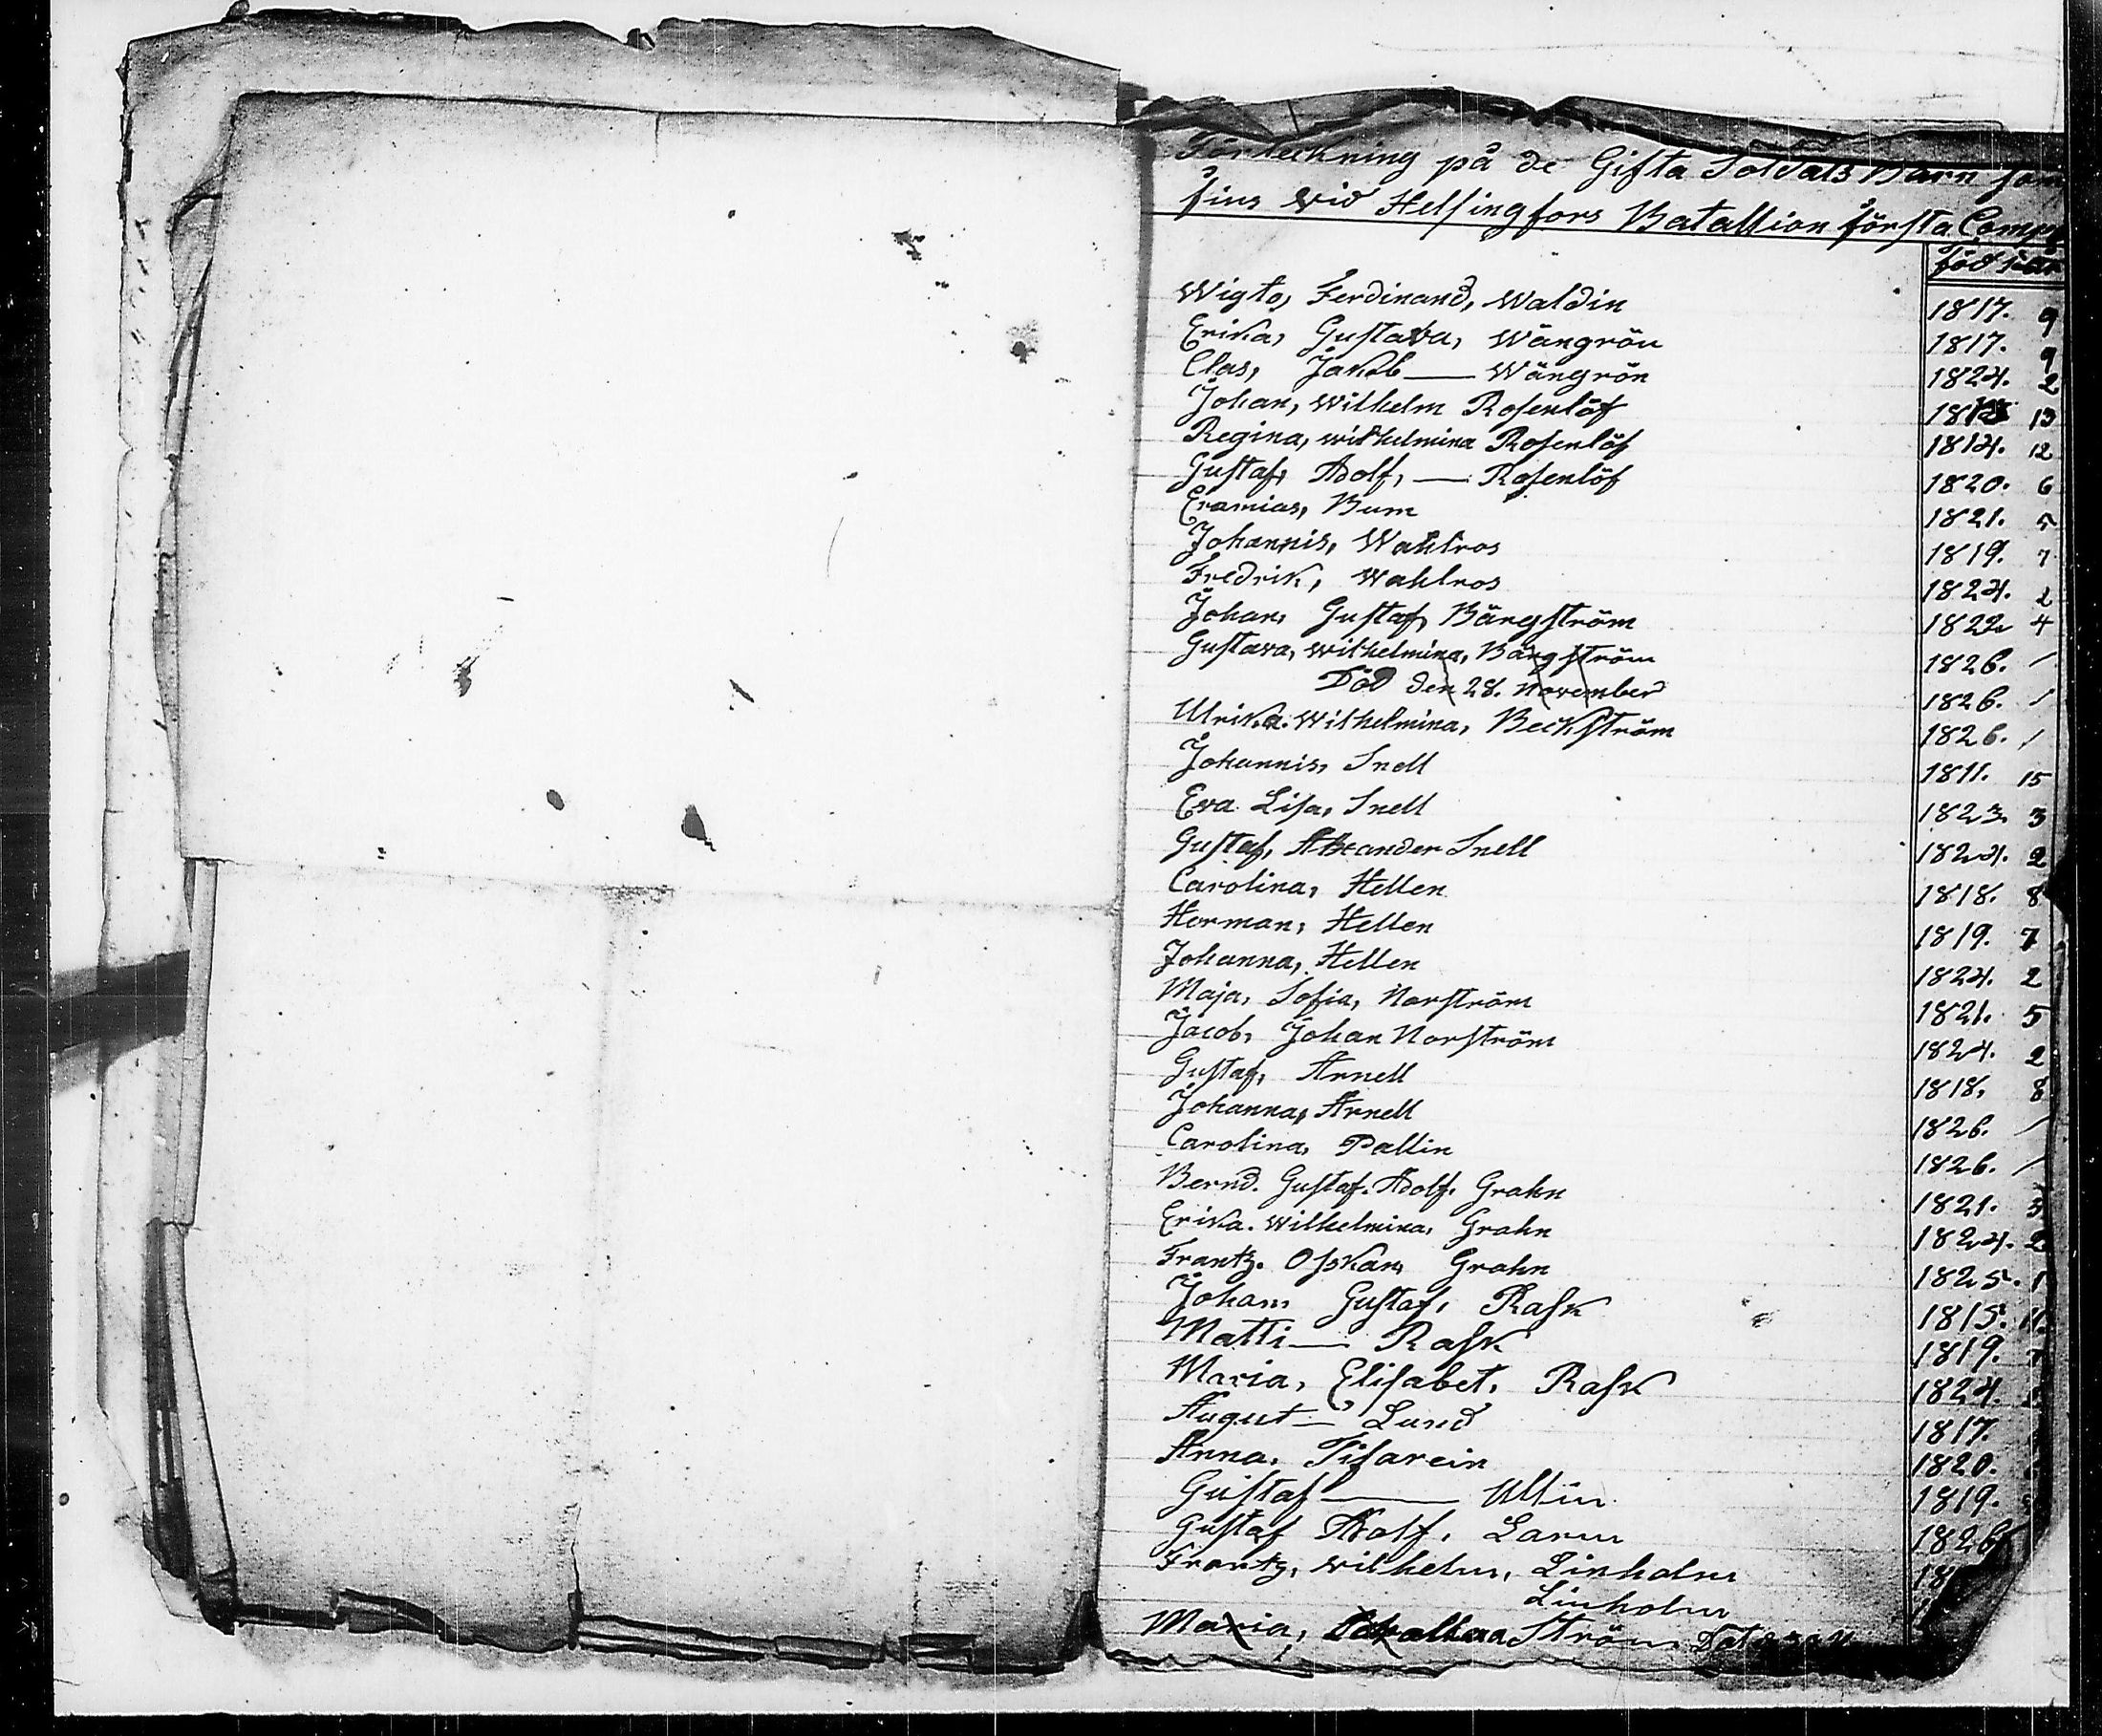 Förteckning på de Gifta Soldats Barn som
fins wid Helsingfors Batallion första Comp
född
Wigto, Ferdinand, Waldin 1817. 9
Erika, Gustava, Wängrön 1817. 9
Clas, Jakob — Wängrön 1824. 2
Johan, Wilhelm Rosenlöf 1813 13
Regina, wilhelmina Rosenlöf 1814. 12
Gustaf, Adolf, — Rosenlöf 1820. 6
Eramias, Bum 1821. 5
Johannis, Wahlros 1819. 7
Fredrik, Wahlros 1824. 2
Johan, Gustaf, Bärgström 1822 4
Gustava, wilhelmina, Bärgström 1826. /
Död den 28. november 1826. /
Ulrika. Wilhelmina, Beckström 1826. /
Johannis, Snell 1811. 15
Eva Lisa, Snell 1823 3
Gustaf, Alexander Snell 1824. 2
Carolina, Hellen 1818. 8
Herman, Hellen 1819. 7
Johanna, Hellen 1824. 2
Maja, Sofia, Norström 1821. 5
Jacob, Johan Norström 1824. 2
Gustaf, Arnell 1818. 8
Johanna, Arnell 1826. /
Carolina, Pallin 1826. /
Bernd. Gustaf. Adolf. Grahn 1821. 5
Erika. Wilhelmina, Grahn 1824. 2
Frantz. Osskar, Grahn 1825. 1
Johan, Gustaf, Rask 1815. 11
Matti — Rask 1819. 7
Maria, Elisabet, Rask 1824.
August — Lund 1817.
Anna, Tisarein 1820.
Gustaf — Ullin 1819.
Gustaf Adolf, Larm 1826
Frantz, wilhelm, Linholm
Linholm
Maria, Ström